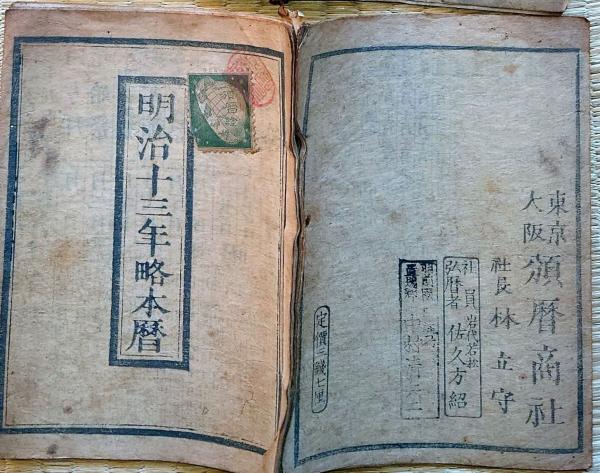 明治十三年略本暦
東京
大阪
頒暦商社
社長 林立守
社員
弘暦者
岩代若松
佐久方紹
定價三錢七厘